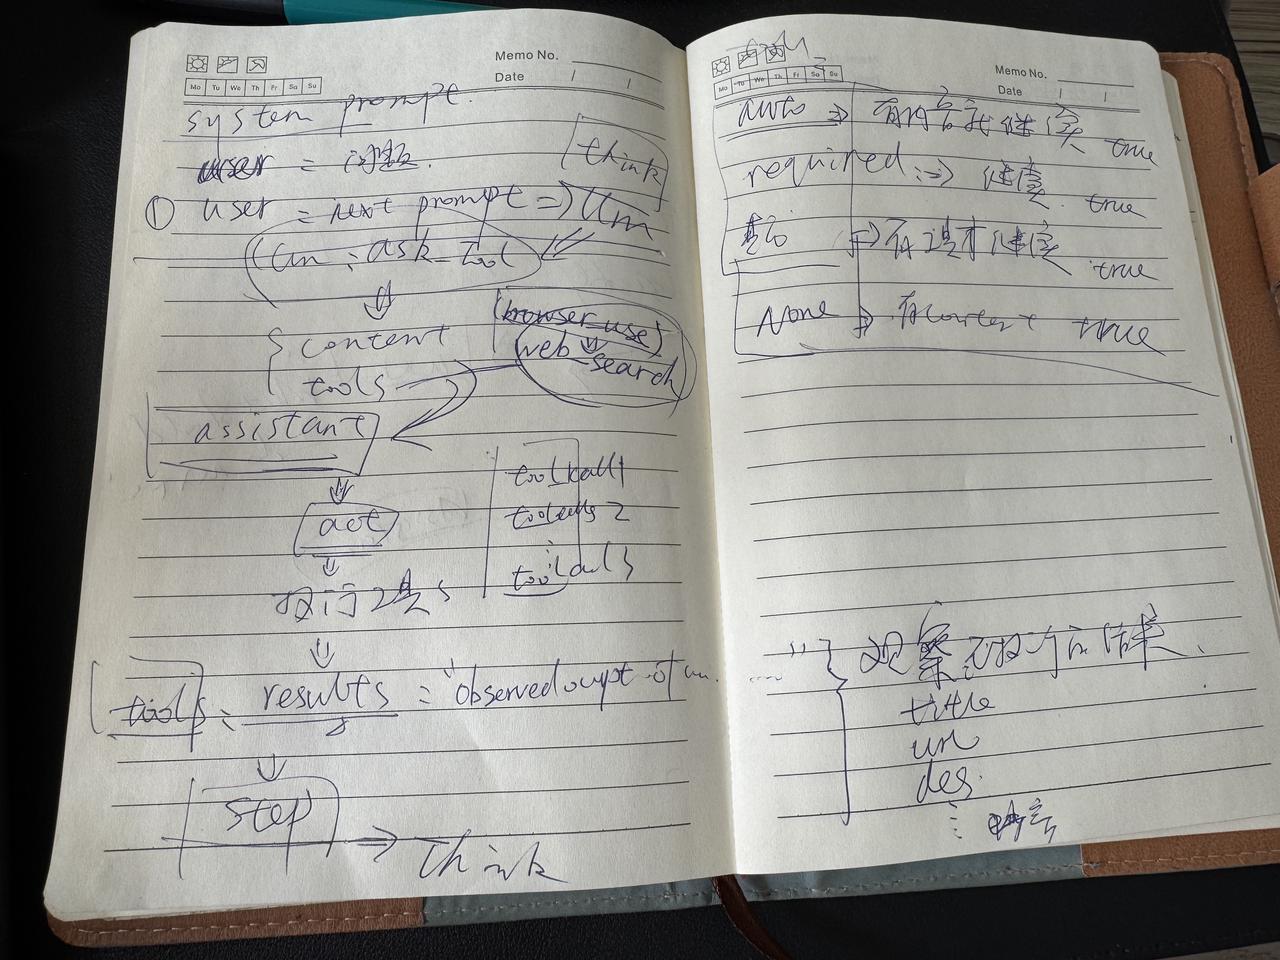 Memo No.
Date
Mo Tu We Th Fr Sa Su
system prompt.
user = 问题.
think
① user = next prompt => llm
llm : ask_tool
content
tools
(browser_use)
web search
assistant
toolcall1
act
toolcalls 2
toolcalls
执行工具
tools = results = "observed output of
step
=> think
Memo No.
Date
Mo Tu We Th Fr Sa Su
auto => 有内容就继续 true
required => 继续. true
=> 有 继续 true
None => 有content true
观察 执行 结果
title
url
des.
内容